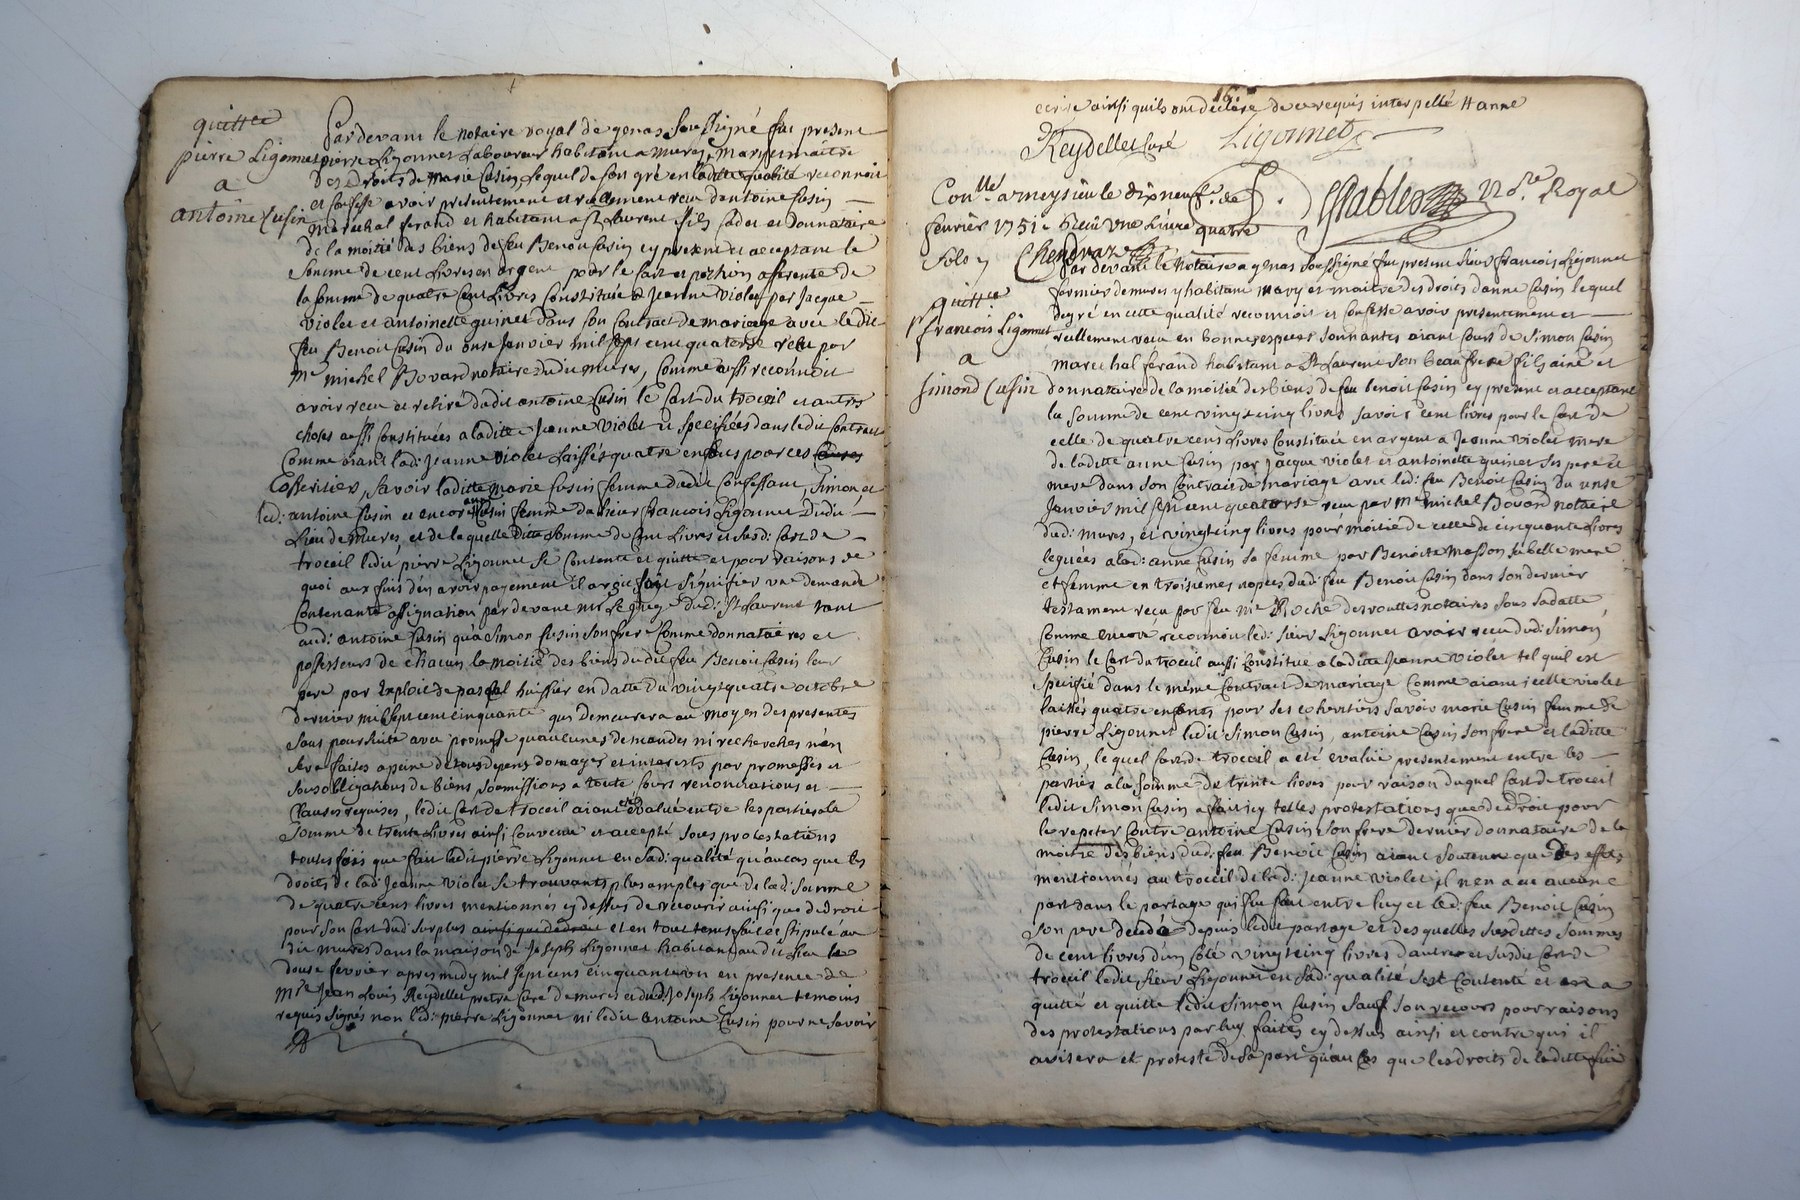 quittce
pierre Ligonnet
a
antoine Cusin
Pardevant le notaire royal de genas soussigné fut present
pierre Ligonnet Laboureur habitant a mures, mary et maitre
des droits de marie Cusin Lequel de son gré en laditte qualité reconnoit
et confesse avoir presentement et reellement receu dantoine Cusin
marechal ferand et habitant a St Laurent fils cadet et donnataire
de la moitié des biens de feu Benoit Cusin cy present et acceptant la
Somme de cent Livres en argent pour le cart et portion afferente de
la somme de quatre cent Livres Constituée a Jeanne Violet par Jacque
Violet et antoinette quinet dans son Contract de mariage avec ledit
feu Benoit Cusin du onse Janvier mil sept cent quatorse receu par
Me michel Bovard notaire dudit mures, Comme aussi reconnoit
avoir receu et retiré dudit antoine Cusin le Cart du troceil et autres
choses aussi Constituées a laditte Jeanne Violet et specifiées dans ledit Contract
Comme aiant lad: Jeanne violet laissés quatre enfans pour ses
Coheritiers, savoir laditte marie Cusin femme dudit Confessant, Simon et
led: antoine Cusin et encore anne Cusin femme du sieur francois Ligonnet dudit
Lieu de mures, et de laquelle ditte somme de Cent Livres et susd: Cart de
troceil ledit pierre Ligonnet se Contente et quitte et pour raisons de
quoi aux fins d'en avoir payement il avoit fait signifier une demande
Contenante assignation pardevant mr le Juge dudit St Laurent tant
aud: antoine Cusin qu'a Simon Cusin son frere Comme donnataires et
possesseurs de chacun la moitié des biens dudit feu Benoit Cusin leur
pere par Exploit de pascal huissier en datte du vingt quatre octobre
dernier mil sept cent cinquante qui demeurera au moyen des presentes
sans poursuite avec promesse qu'aucunes demandes ni recherches n'en
sera faites a peine de tous depens domages et interests par promesses et
sous obligations de biens soumissions a toute Cours renonciations et
Clauses requises, ledit Cart de troceil aiant eté evalué entre les parties a la
somme de trente Livres ainsi Convenu et accepté sous protestations
toutes fois que fait ledit pierre Ligonnet en sad: qualité qu'au cas que les
droits de lad: Jeanne Violet se trouvants plus amples que de lad: somme
de quatre cens livres mentionnés cy dessus de recourir ainsi que de droit
pour son Cart dud: surplus ainsi que de droit et en tout tems fait et stipulé au
dit mures dans la maison de Joseph Ligonnet habitant audit Lieu le
douse fevrier apres midy mil sept cens cinquante un en presence de
Mre Jean Louis Reydellet pretre Curé de mures et dud: Joseph Ligonnet temoins
requis signés non led: pierre Ligonnet ni ledit antoine Cusin pour ne savoir
16.
ecrire ainsi quils ont declaré de ce requis interpellé
Reydellet Curé Ligonnet
Establet No.re Royal
Conllé a meysieu le dixneuf
fevrier 1751. Receu Une Livre quatre
sols
Chendraz
quittce
francois Ligonnet
a
simond Cusin
Pardevant le Notaire a genas soussigné fut present sieur francois Ligonnet
fermier de mures y habitant mary et maitre des droits d'anne Cusin lequel
de gré en cette qualité reconnoit et Confesse avoir presentement et
reellement receu en bonnes especes sonnantes aiant Cours de Simon Cusin
marechal ferand habitant a St Laurent son beau frere fils ainé et
donnataire de la moitié des biens de feu benoit Cusin cy present et acceptant
la somme de cent vingt cinq livres savoir cent livres pour le Cart de
celle de quatre cens Livres Constituée en argent a Jeanne Violet mere
de laditte anne Cusin par Jacque Violet et antoinette quinet ses pere et
mere dans son Contrat de mariage avec led: feu Benoit Cusin du onse
Janvier mil sept cent quatorse receu par Me michel Bovard notaire
dud: mures, et vingt cinq livres pour moitié de celle de cinquante Livres
leguées a lad: anne Cusin sa femme par Benoite Masson sa belle mere
et femme en troisiemes nopces dud: feu Benoit Cusin dans son dernier
testament receu par feu Me Roche des routtes notaires sous sa datte
Comme encore reconnoit led: sieur Ligonnet avoir receu dud: Simon
Cusin le Cart du troceil aussi Constitué a laditte Jeanne Violet tel quil est
specifié dans le même Contrat de mariage Comme aiant icelle violet
laissés quatre enfants pour ses coheritiers savoir marie Cusin femme de
pierre Ligonnet ledit Simon Cusin, antoine Cusin son frere et laditte
Cusin, lequel Cart de troceil a eté evalué presentement entre les
parties a la somme de trente livres pour raison duquel Cart de troceil
ledit Simon Cusin a fait icy telles protestations que de droit pour
le repeter Contre antoine Cusin son frere dernier donnataire de la
moitié des biens dud: feu Benoit Cusin aiant soutenu que des effets
mentionnés au troceil de lad: Jeanne Violet il n'en a eu aucune
part dans le partage qui fut fait entre luy et led: feu Benoit Cusin
son pere decedé depuis ledit partage et des quelles susdittes sommes
de cent livres d'un coté vingt cinq livres d'autres et susdit Cart de
troceil ledit sieur Ligonnet en sad: qualité s'est Contenté et en a
quitté et quitte ledit Simon Cusin sauf son recours pour raisons
des protestations par luy faites cy dessus ainsi et contre qui il
avisera et proteste de sa part qu'au Cas que les droits de laditte